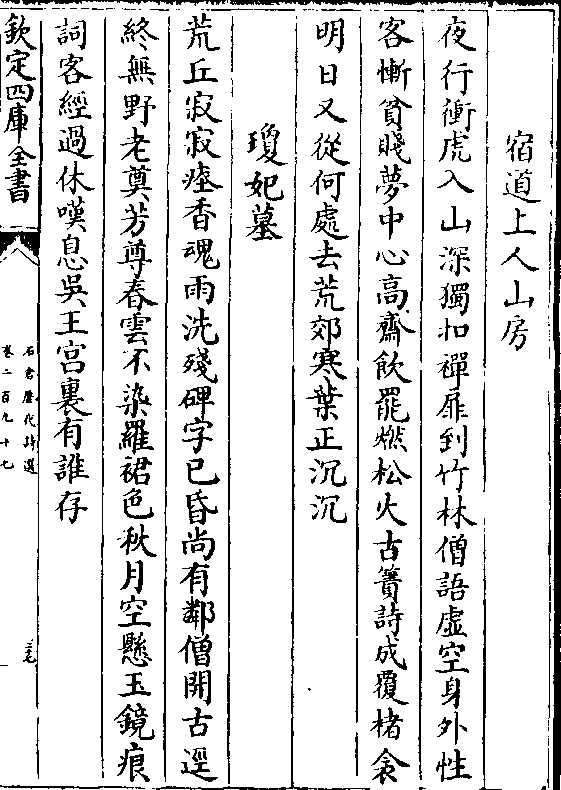 宿道上人山房
夜行衝虎入山深獨扣禪扉到竹林僧語虛空身外性
客慚貧賤夢中心高齋飲罷燃松火古簣詩成覆楮衾
明日又從何處去荒郊寒葉正沉沉
瓊妃墓
荒丘寂寂瘞香魂雨洗殘碑字已昏尚有鄰僧開古逕
終無野老奠芳尊春雲不染羅裙色秋月空懸玉鏡痕
詞客經過休嘆息吳王宮裏有誰存
欽定四庫全書
石倉歷代詩選
卷二百九十七